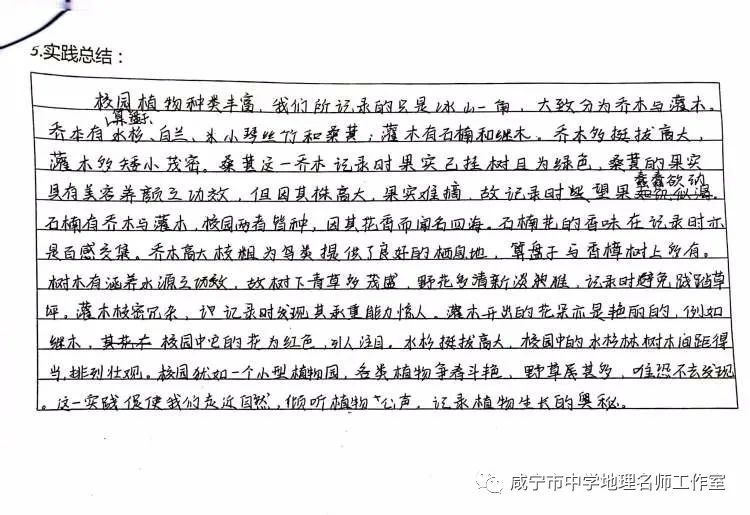 5.实践总结：
校园植物种类丰富，我们所记录的只是冰山一角，大致分为乔木与灌木。
算盘子、
乔木有水杉、白兰、米小琴丝竹和桑葚；灌木有石楠和继木。乔木多挺拔高大，
灌木多矮小茂密。桑葚这一乔木记录时果实已挂树且为绿色，桑葚的果实
蠢蠢欲动
具有美容养颜之功效，但因其株高大，果实难摘，故记录时些望果
石楠有乔木与灌木，校园两者皆种，因其花香而闻名四海。石楠花的香味在记录时亦
是百感交集。乔木高大枝粗为鸟类提供了良好的栖息地，算盘子与香樟树上多有。
树木有涵养水源之功效，故树下青草多茂盛，野花多清新淡雅，记录时避免践踏草
坪。灌木枝密冗杂，记录时发现其承重能力惊人。灌木开出的花朵亦是艳丽的，例如
继木，校园中它的花为红色，引人注目。水杉挺拔高大，校园中的水杉林树木间距得
当，排列壮观。校园犹如一个小型植物园，各类植物争奇斗艳，野草居甚多，唯恐不去发现
。这一实践促使我们走近自然，倾听植物心声，记录植物生长的奥秘。
咸宁市中学地理名师工作室